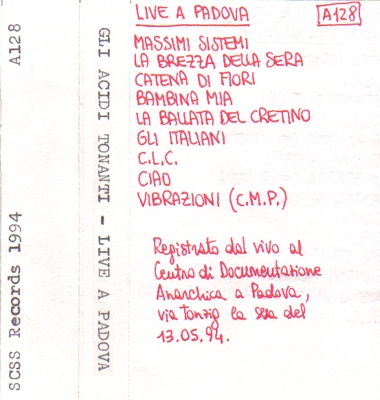 A128
SCSS Records 1994
GLI ACIDI TONANTI - LIVE A PADOVA
LIVE A PADOVA
A128
MASSIMI SISTEMI
LA BREZZA DELLA SERA
CATENA DI FIORI
BAMBINA MIA
LA BALLATA DEL CRETINO
GLI ITALIANI
C.L.C.
CIAO
VIBRAZIONI (C.M.P.)
Registrato dal vivo al
Centro di Documentazione
Anarchica a Padova,
via Tonzig la sera del
13.05.94.